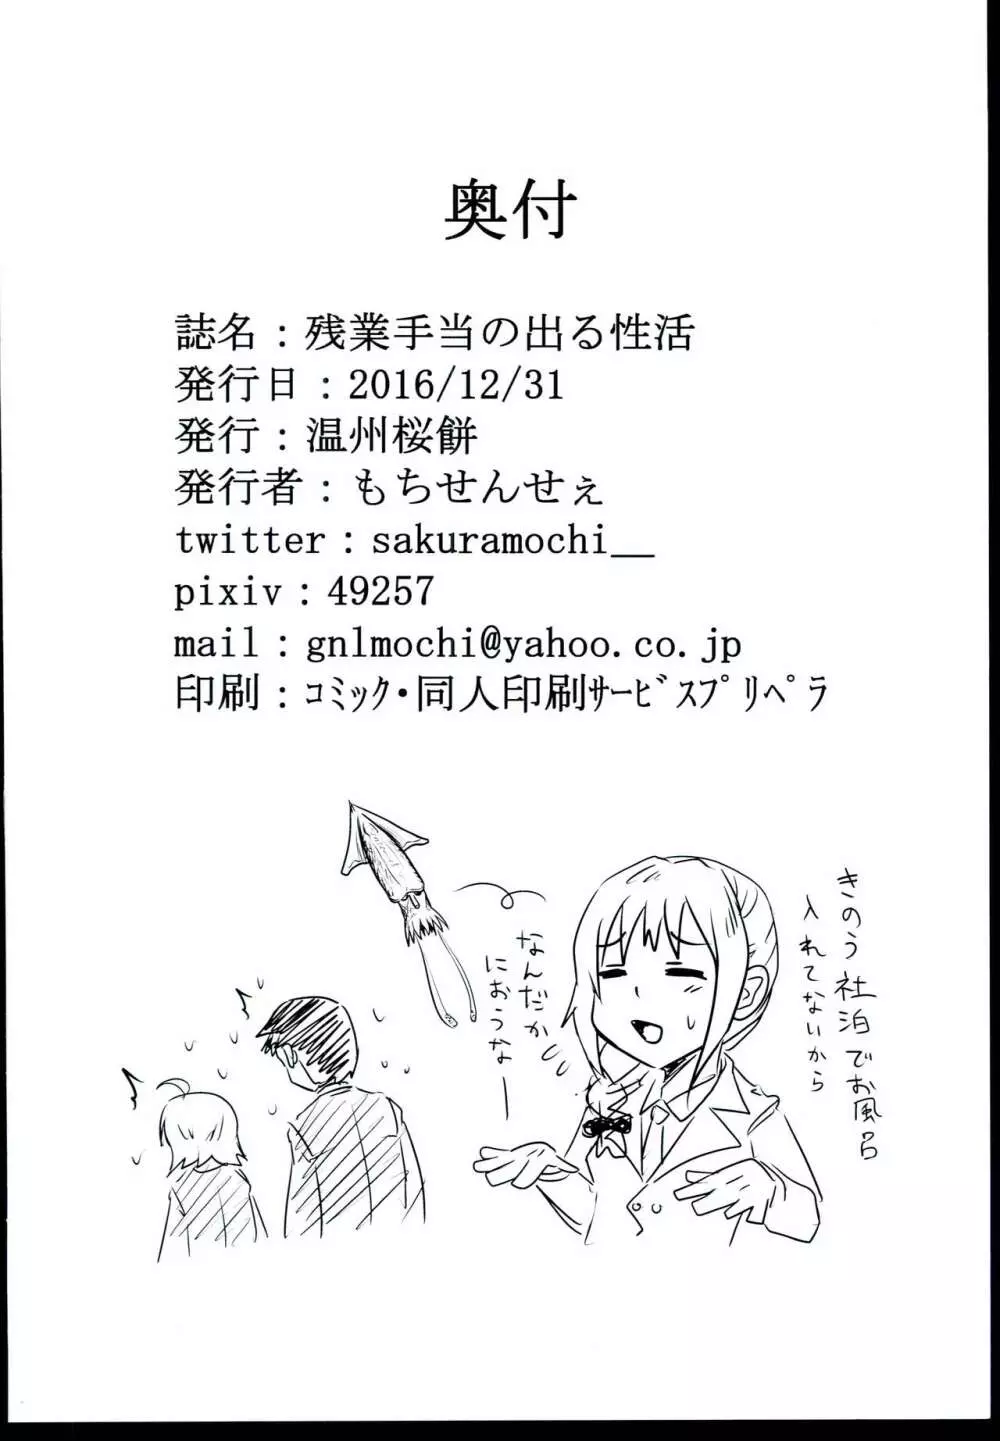 奥付
誌名：残業手当の出る性活
発行日：2016/12/31
発行：温州桜餅
発行者：もちせんせぇ
twitter：sakuramochi__
pixiv：49257
mail：gnlmochi@yahoo.co.jp
印刷：ｺﾐｯｸ･同人印刷ｻｰﾋﾞｽﾌﾟﾘﾍﾟﾗ
きのう社泊でお風呂
入れてないから
なんだか
におうなー